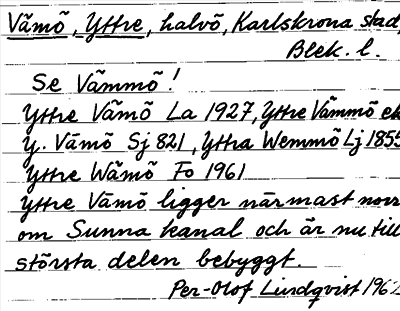 Vämö, Yttre, halvö, Karlskrona stad,
Blek. l.
Se Vämmö!
Yttre Vämö La 1927, Yttre Vämmö ek
Y. Vämö Sj 821, Yttra Wemmö Lj 1855
Yttre Wämö Fo 1961
Yttre Vämö ligger närmast norr
om Sunna kanal och är nu till
största delen bebyggt.
Per-Olof Lindqvist 196